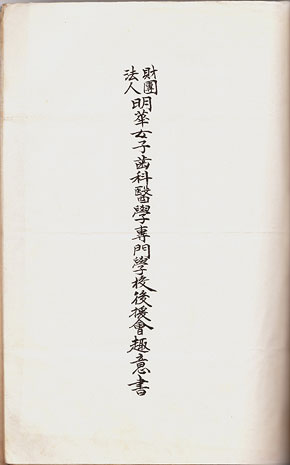 財團法人明華女子齒科醫學專門學校後援會趣意書